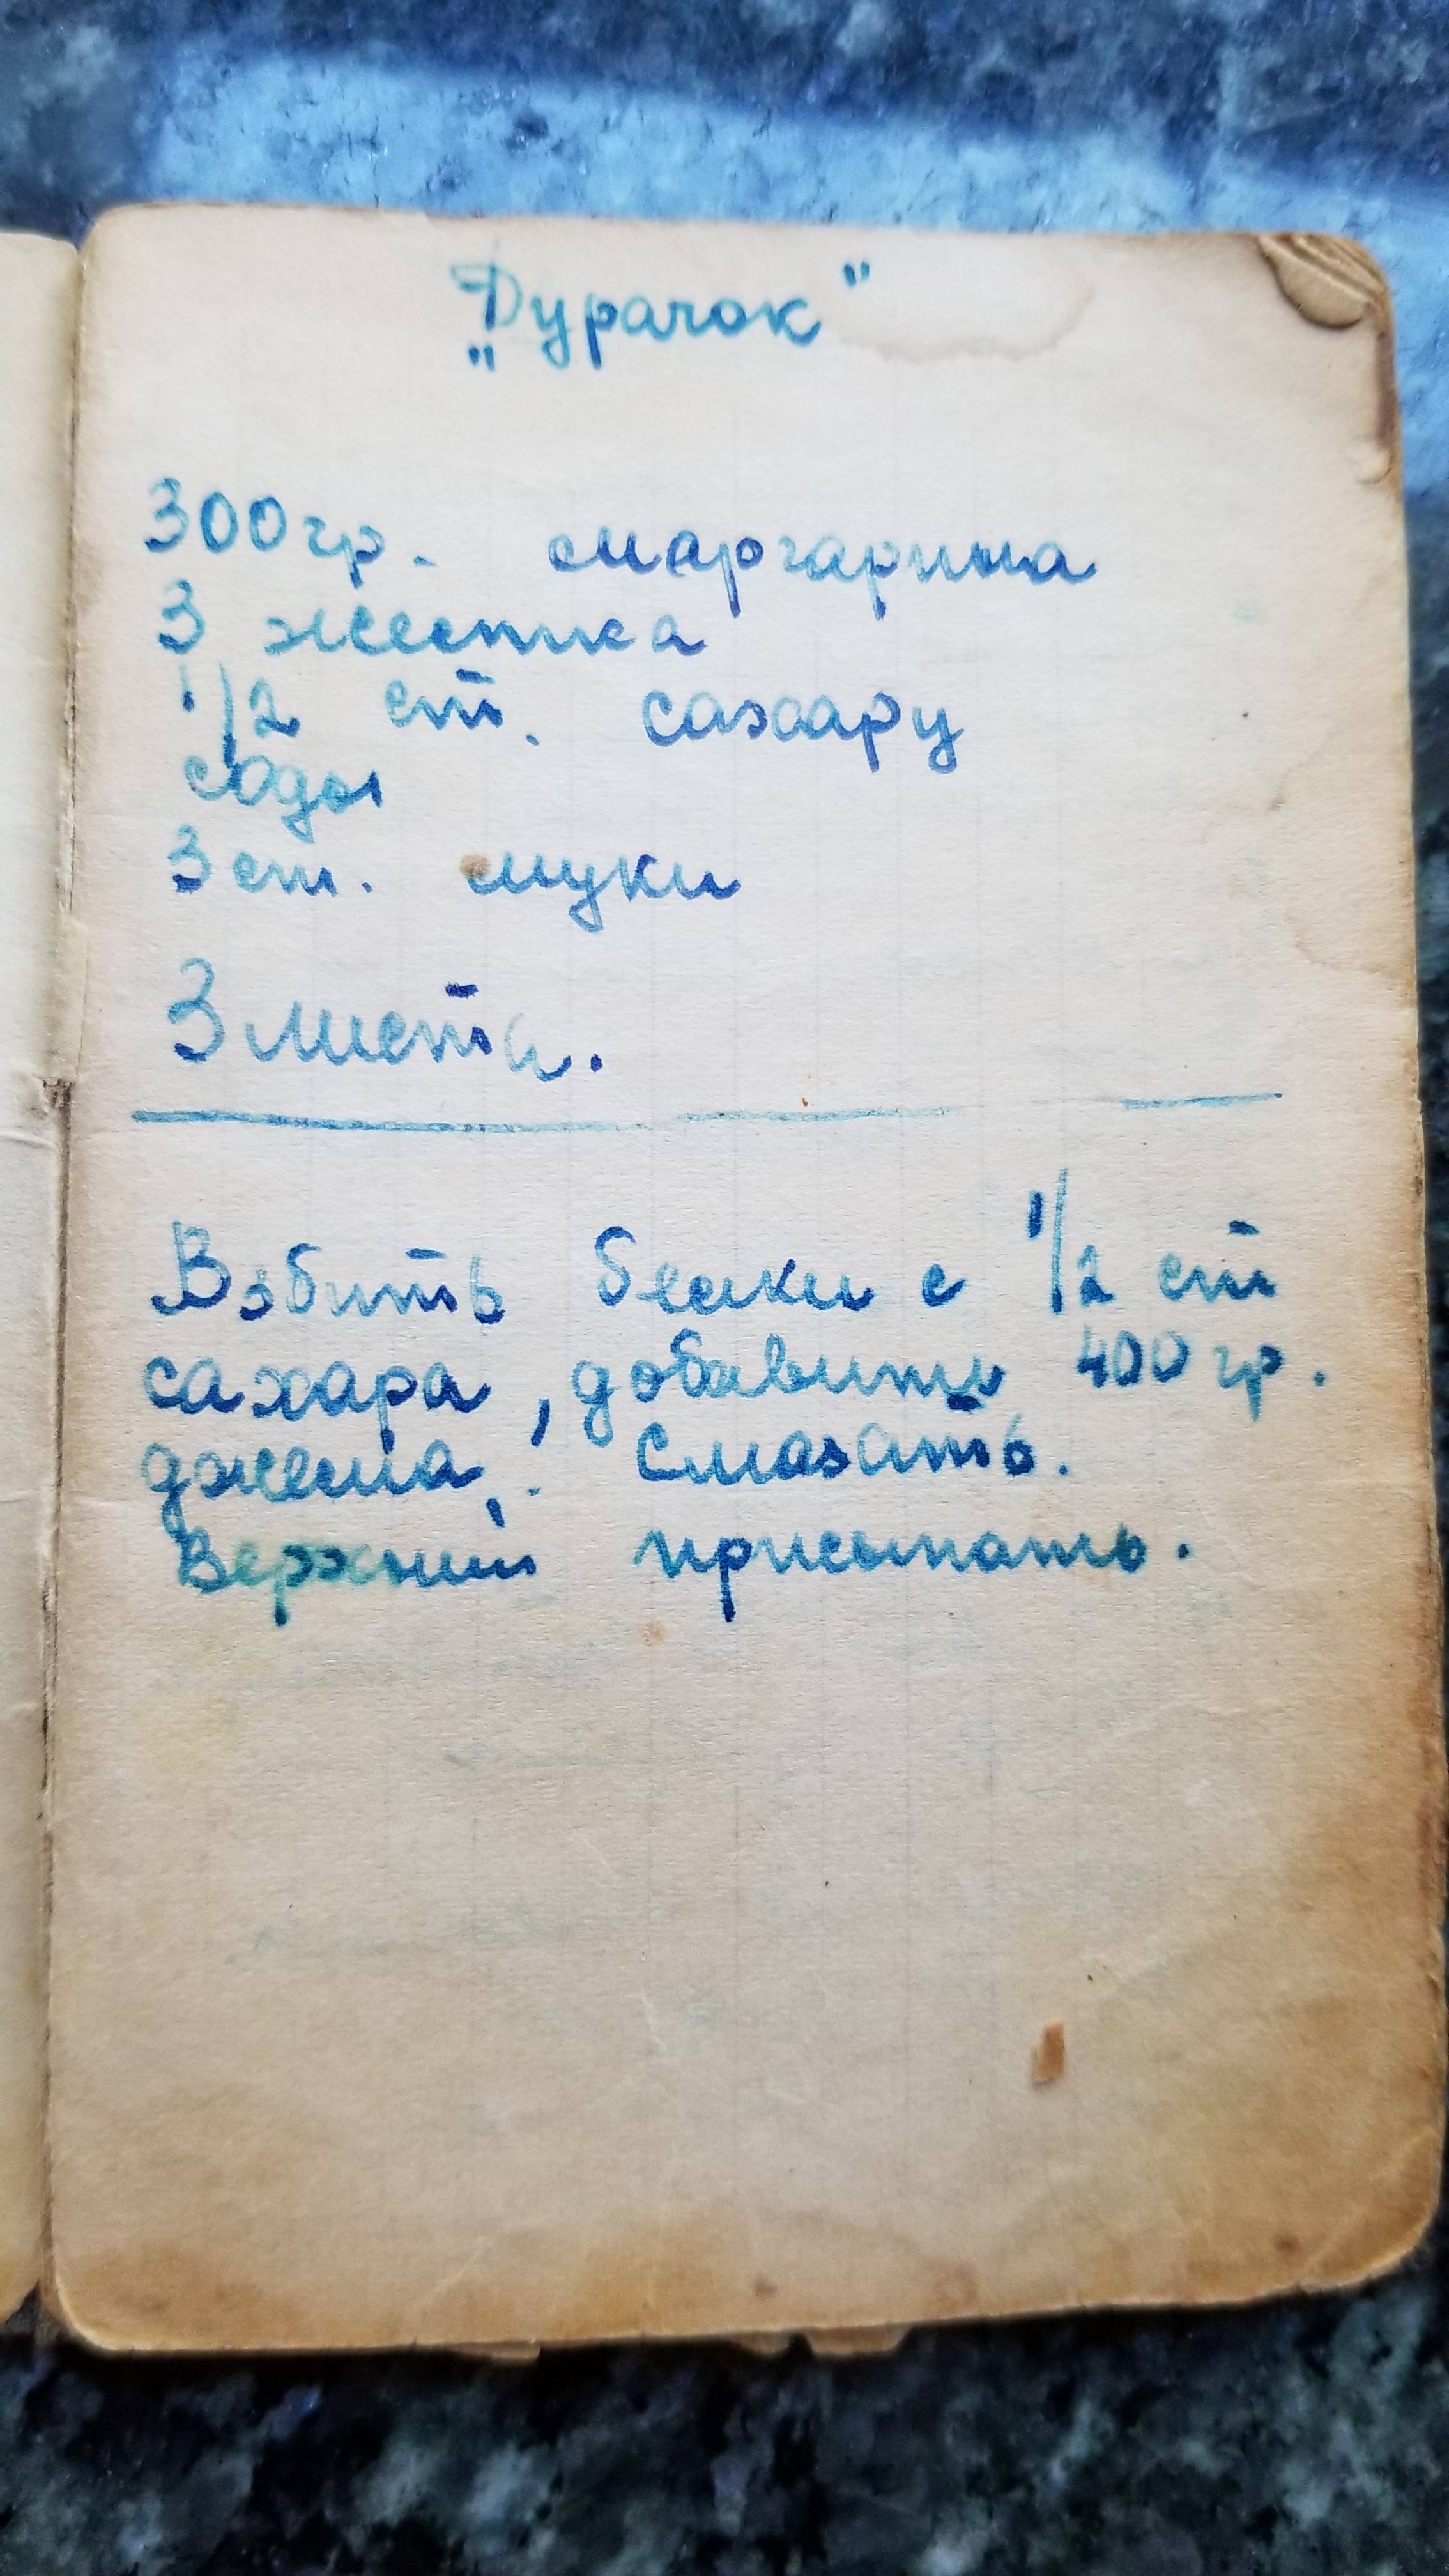 „Дурачок"
300 гр. маргарина
3 желтка
1/2 ст. сахару
соды
3 ст. муки
3 листа.
Взбить белки с 1/2 ст
сахара, добавить 400 гр.
джема,. Смазать.
Верхний присыпать.